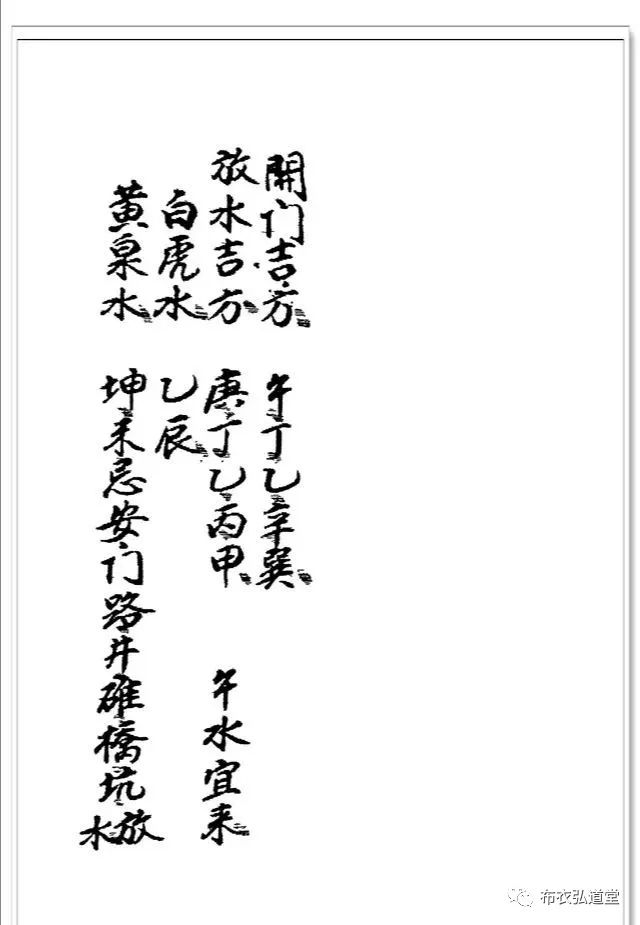 開门吉方 午丁乙辛巽
放水吉方 庚丁乙丙甲 午水宜来
白虎水 乙辰
黄泉水 坤未忌安门路井碓橋坑放水
布衣弘道堂